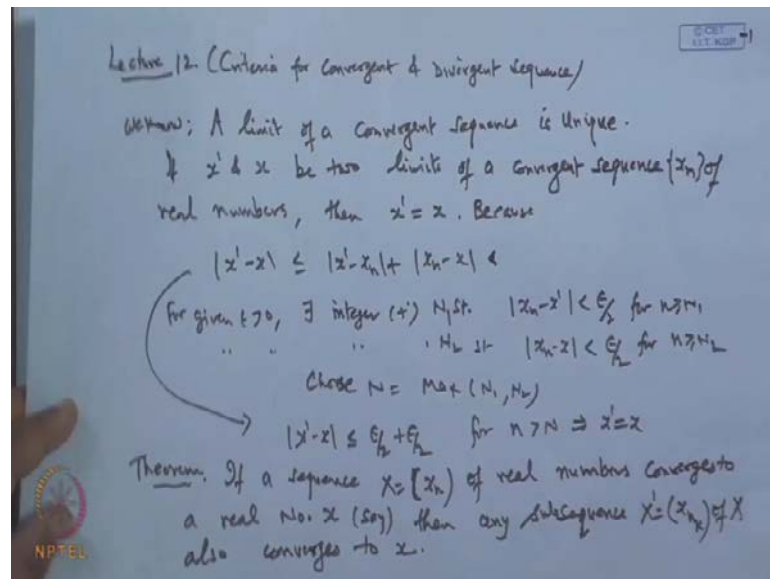 © CET
I.I.T. KGP
Lecture 12. (Criteria for Convergent & Divergent Sequence)
We know; A limit of a convergent sequence is Unique.
If x' & x be two limits of a convergent sequence {xn} of
real numbers, then x' = x. Because
|x'-x| ≤ |x'-xn| + |xn-x| <
For given ϵ>0, ∃ integer (+) N1 st. |xn-x'| < ϵ/2 for n≥N1
" " " , N2 st |xn-x| < ϵ/2 for n≥N2
Choose N = Max (N1, N2)
|x'-x| ≤ ϵ/2 + ϵ/2 for n>N ⇒ x'=x
Theorem. If a sequence X=(xn) of real numbers converges to
a real No. x (say) then any subsequence X'=(xnk) of X
also converges to x.
NPTEL